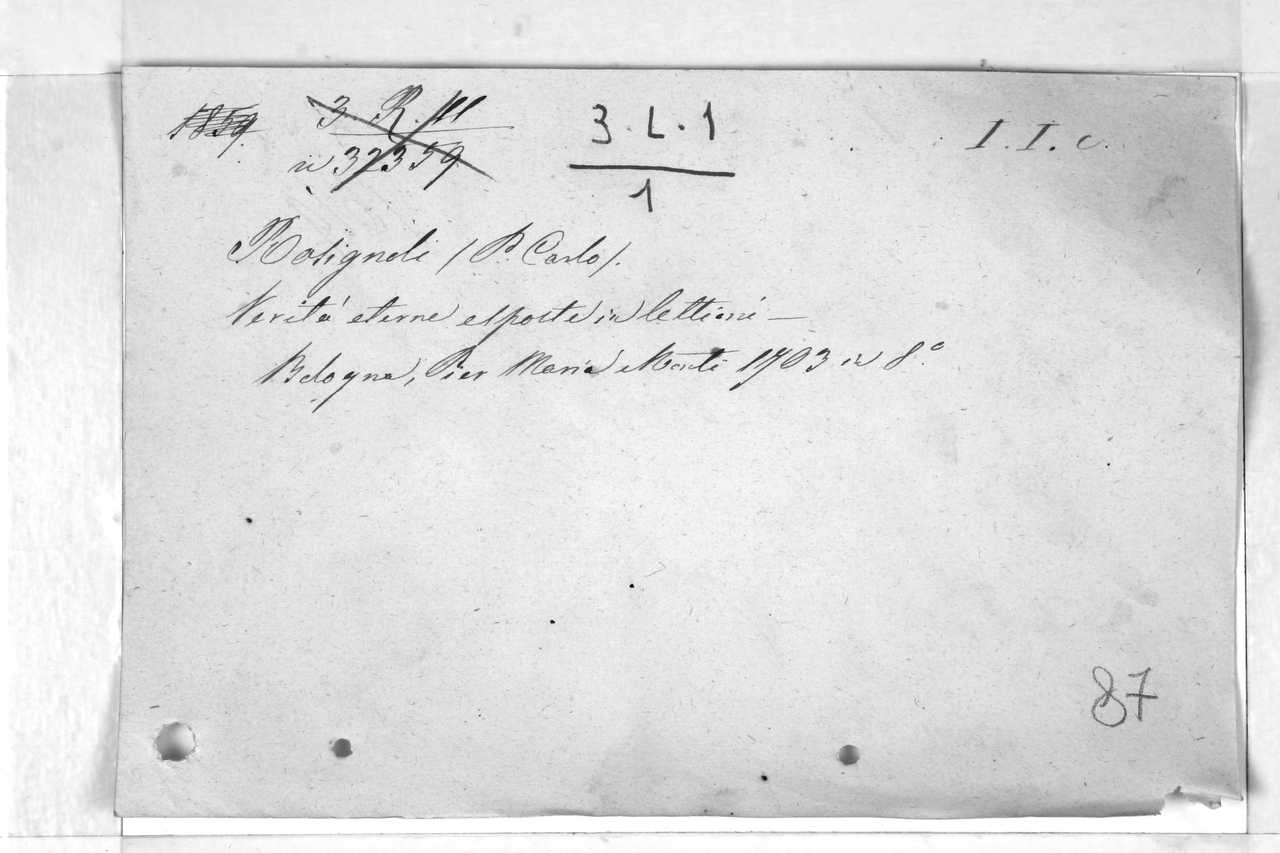 1859. 3. R. III 3. L. 1 I. I. c.
n 32359 1
Rosignoli (P. Carlo).
Verità eterne esposte in lettioni —
Bologna, Pier Maria Monti 1703 in 8.º
87